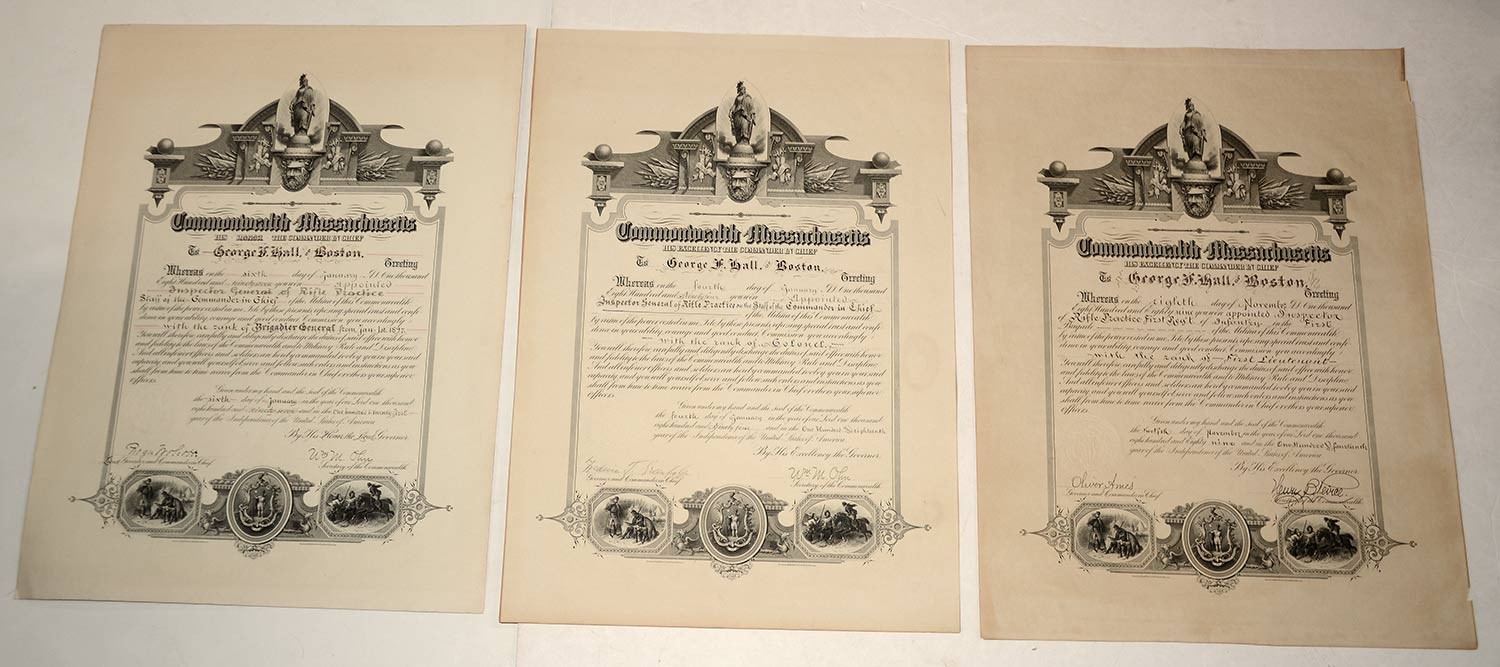 Commonwealth Massachusetts
HIS HONOR THE COMMANDER IN CHIEF
To George F. Hall, of Boston.
Greeting
Whereas on the sixth day of January A.D. One thousand
Eight Hundred and ninety seven you were appointed
Inspector General of Rifle Practice
Staff of the Commander-in-Chief of the Militia of this Commonwealth
by virtue of the power vested in me I do by these presents reposing special trust and confi-
dence in your ability, courage and good conduct Commission you accordingly
with the rank of Brigadier General from Jan. 18. 1895.
You will therefore carefully and diligently discharge the duties of said office with honor
and fidelity to the laws of the Commonwealth and to Military Rule and Discipline
And all inferior officers and soldiers are hereby commanded to obey you in your said
capacity and you will yourself observe and follow such orders and instructions as you
shall from time to time receive from the Commander in Chief or others your superior
officers.
Given under my hand and the seal of the Commonwealth
the sixth day of January in the year of our Lord one thousand
eight hundred and ninety seven and in the One hundred & twenty first
year of the Independence of the United States of America.
By His Honor, the Lieut. Governor.
Roger Wolcott
Wm. M. Olin
Lieut. Governor and Commander in Chief
Secretary of the Commonwealth
Commonwealth Massachusetts
HIS EXCELLENCY THE COMMANDER IN CHIEF
To George F. Hall, of Boston,
Greeting
Whereas on the fourth day of January A.D. One thousand
Eight Hundred and Ninety four you were Appointed
Inspector General of Rifle Practice on the Staff of the Commander in Chief
of the Militia of this Commonwealth
by virtue of the power vested in me I do by these presents reposing special trust and confi-
dence in your ability, courage and good conduct Commission you accordingly
with the rank of Colonel.
You will therefore carefully and diligently discharge the duties of said office with honor
and fidelity to the laws of the Commonwealth and to Military Rule and Discipline
And all inferior officers and soldiers are hereby commanded to obey you in your said
capacity and you will yourself observe and follow such orders and instructions as you
shall from time to time receive from the Commander in Chief or others your superior
officers.
Given under my hand and the seal of the Commonwealth
the fourth day of January in the year of our Lord one thousand
eight hundred and Ninety four and in the One Hundred & eighteenth
year of the Independence of the United States of America.
By His Excellency, the Governor.
Wm. M. Olin
Governor and Commander in Chief
Secretary of the Commonwealth
Commonwealth Massachusetts
HIS EXCELLENCY THE COMMANDER IN CHIEF
To George F. Hall, of Boston,
Greeting
Whereas on the eighth day of November A.D. One thousand
Eight Hundred and Eighty nine you were appointed Inspector
of Rifle Practice First Regt. of Infantry in the First
Brigade of the Militia of this Commonwealth
by virtue of the power vested in me I do by these presents reposing special trust and confi-
dence in your ability, courage and good conduct Commission you accordingly
with the rank of First Lieutenant
You will therefore carefully and diligently discharge the duties of said office with honor
and fidelity to the laws of the Commonwealth and to Military Rule and Discipline
And all inferior officers and soldiers are hereby commanded to obey you in your said
capacity and you will yourself observe and follow such orders and instructions as you
shall from time to time receive from the Commander in Chief or others your superior
officers.
Given under my hand and the seal of the Commonwealth
the twelfth day of November in the year of our Lord one thousand
eight hundred and Eighty nine and in the One Hundred & fourteenth
year of the Independence of the United States of America.
By His Excellency, the Governor
Oliver Ames
Henry B. Peirce
Governor and Commander in Chief
Secretary of the Commonwealth